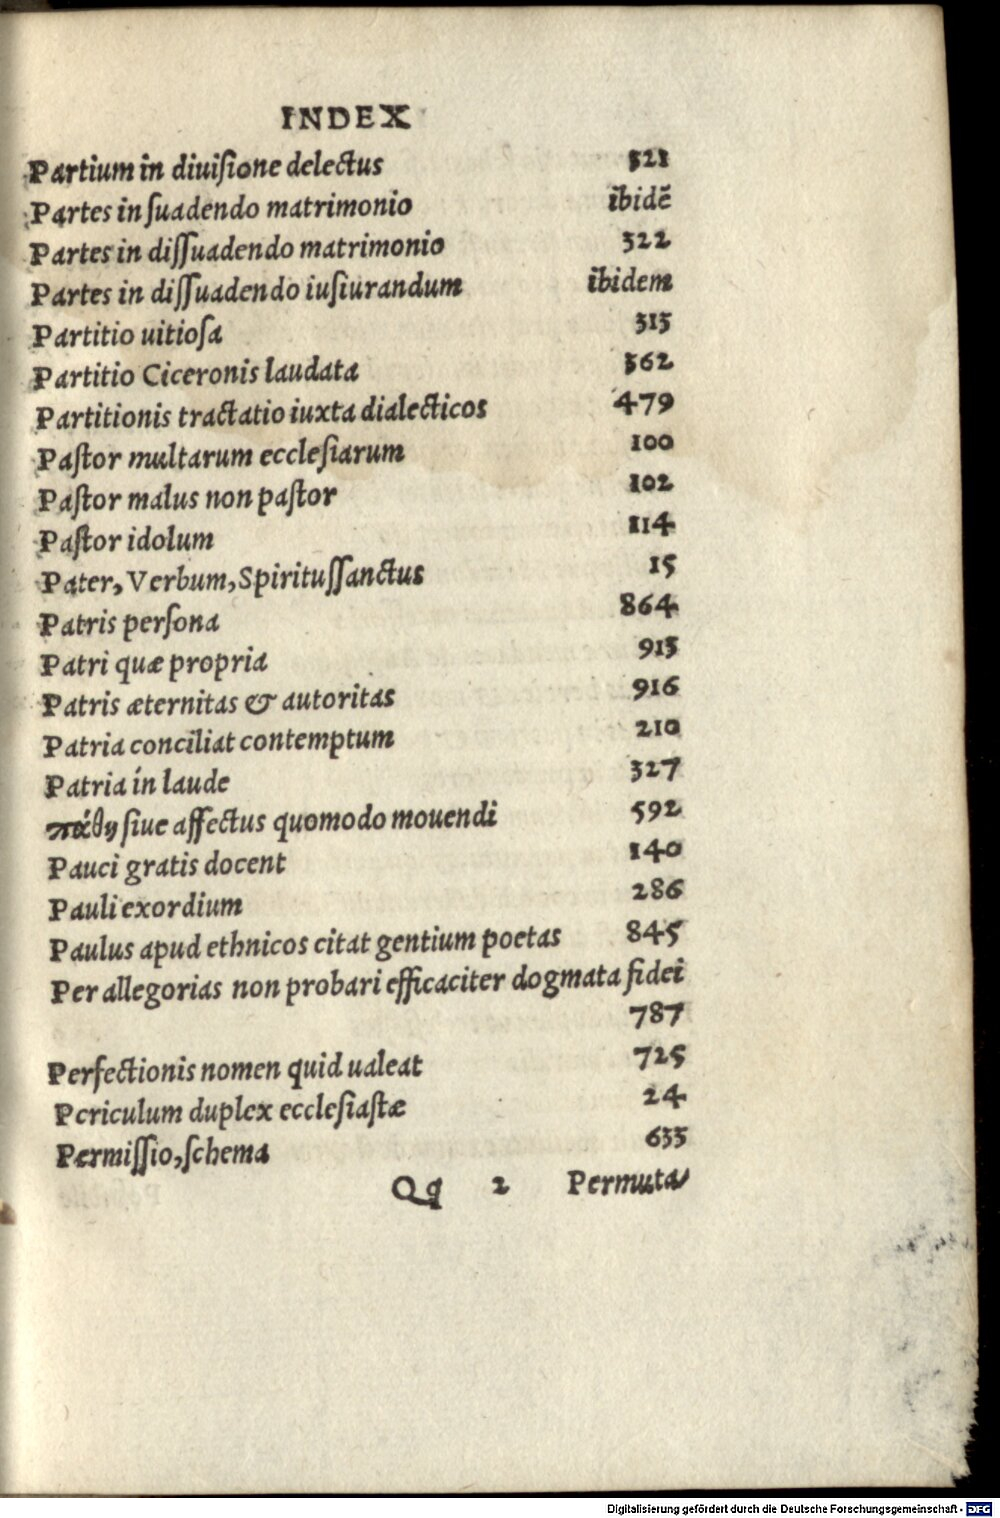 INDEX
Partium in diuiſione delectus 321
Partes in ſuadendo matrimonio ibidē
Partes in diſſuadendo matrimonio 322
Partes in diſſuadendo iuſiurandum ibidem
Partitio uitioſa 313
Partitio Ciceronis laudata 362
Partitionis tractatio iuxta dialecticos 479
Paſtor multarum eccleſiarum 100
Paſtor malus non paſtor 102
Paſtor idolum 114
Pater, Verbum, Spirituſſanctus 15
Patris perſona 864
Patri quæ propria 913
Patris æternitas & autoritas 916
Patria conciliat contemptum 210
Patria in laude 327
πάθη ſiue affectus quomodo mouendi 592
Pauci gratis docent 140
Pauli exordium 286
Paulus apud ethnicos citat gentium poetas 845
Per allegorias non probari efficaciter dogmata fidei
787
Perfectionis nomen quid ualeat 725
Periculum duplex eccleſiaſtæ 24
Permiſſio, ſchema 633
Qq 2 Permuta/
Digitalisierung gefördert durch die Deutsche Forschungsgemeinschaft - DFG